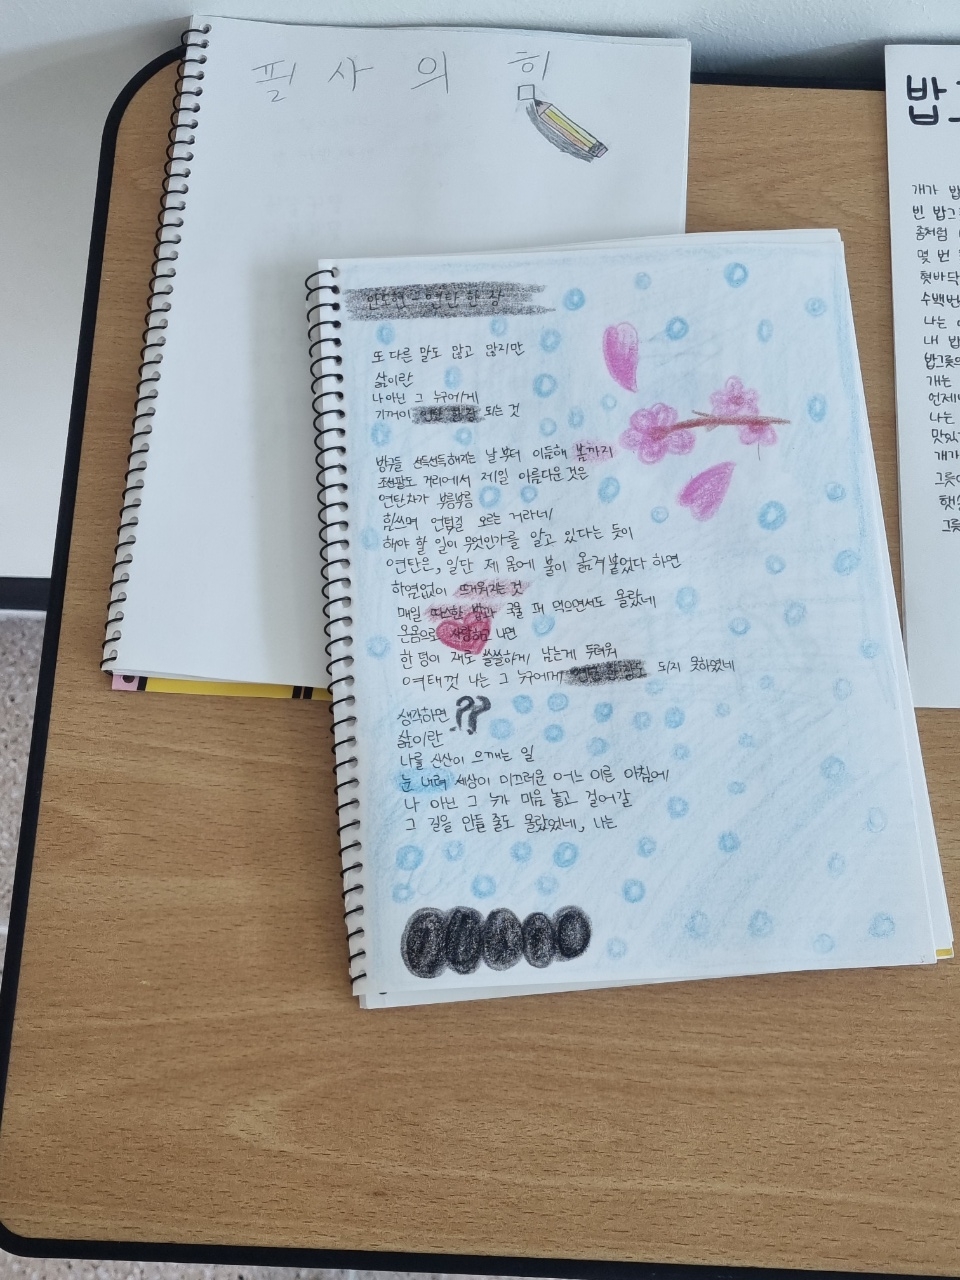 필사의 힘
안도현 - 연탄 한 장
또 다른 말도 많고 많지만
삶이란
나 아닌 그 누구에게
기꺼이 연탄 한 장 되는 것
방구들 선득선득해지는 날부터 이듬해 봄까지
조선팔도 거리에서 제일 아름다운 것은
연탄차가 부릉부릉
힘쓰며 언덕길 오르는 거라네
해야 할 일이 무엇인가를 알고 있다는 듯이
연탄은, 일단 제 몸에 불이 옮겨 붙었다 하면
하염없이 뜨거워지는 것
매일 따스한 밥과 국물 퍼 먹으면서도 몰랐네
온몸으로 사랑하고 나면
한 덩이 재로 쓸쓸하게 남는게 두려워
여태껏 나는 그 누구에게 연탄 한 장도 되지 못하였네
생각하면 ??
삶이란
나를 산산이 으깨는 일
눈 내려 세상이 미끄러운 어느 이른 아침에
나 아닌 그 누가 마음 놓고 걸어갈
그 길을 만들 줄도 몰랐었네, 나는
개가
빈 밥그
좀처럼
몇 번
혓바닥
수백번
나는
내 밥
밥그릇의
개는
언제
나는
개가
햇살